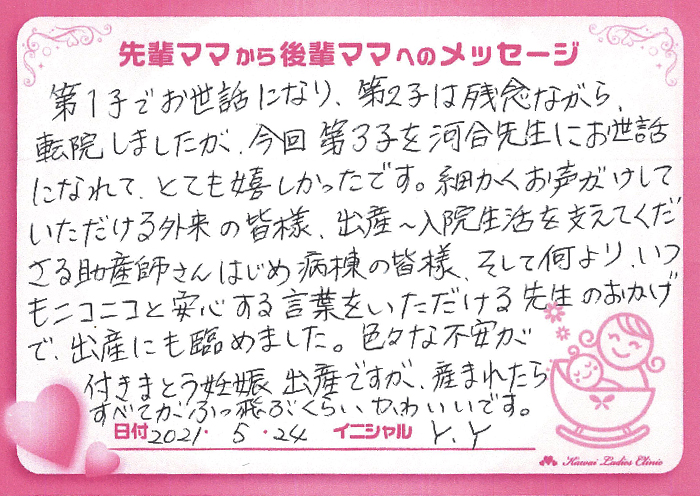 先輩ママから後輩ママへのメッセージ
第1子でお世話になり、第2子は残念ながら、
転院しましたが、今回第3子を河合先生にお世話
になれて、とても嬉しかったです。細かくお声がけして
いただける外来の皆様、出産〜入院生活を支えてくだ
さる助産師さんはじめ病棟の皆様、そして何より、いつ
もニコニコと安心する言葉をいただける先生のおかげ
で、出産にも臨めました。色々な不安が
付きまとう妊娠、出産ですが、産まれたら
すべてがふっ飛ぶくらいかわいいです。
日付 2021. 5 . 24 イニシャル Y. Y
Kawai Ladies Clinic